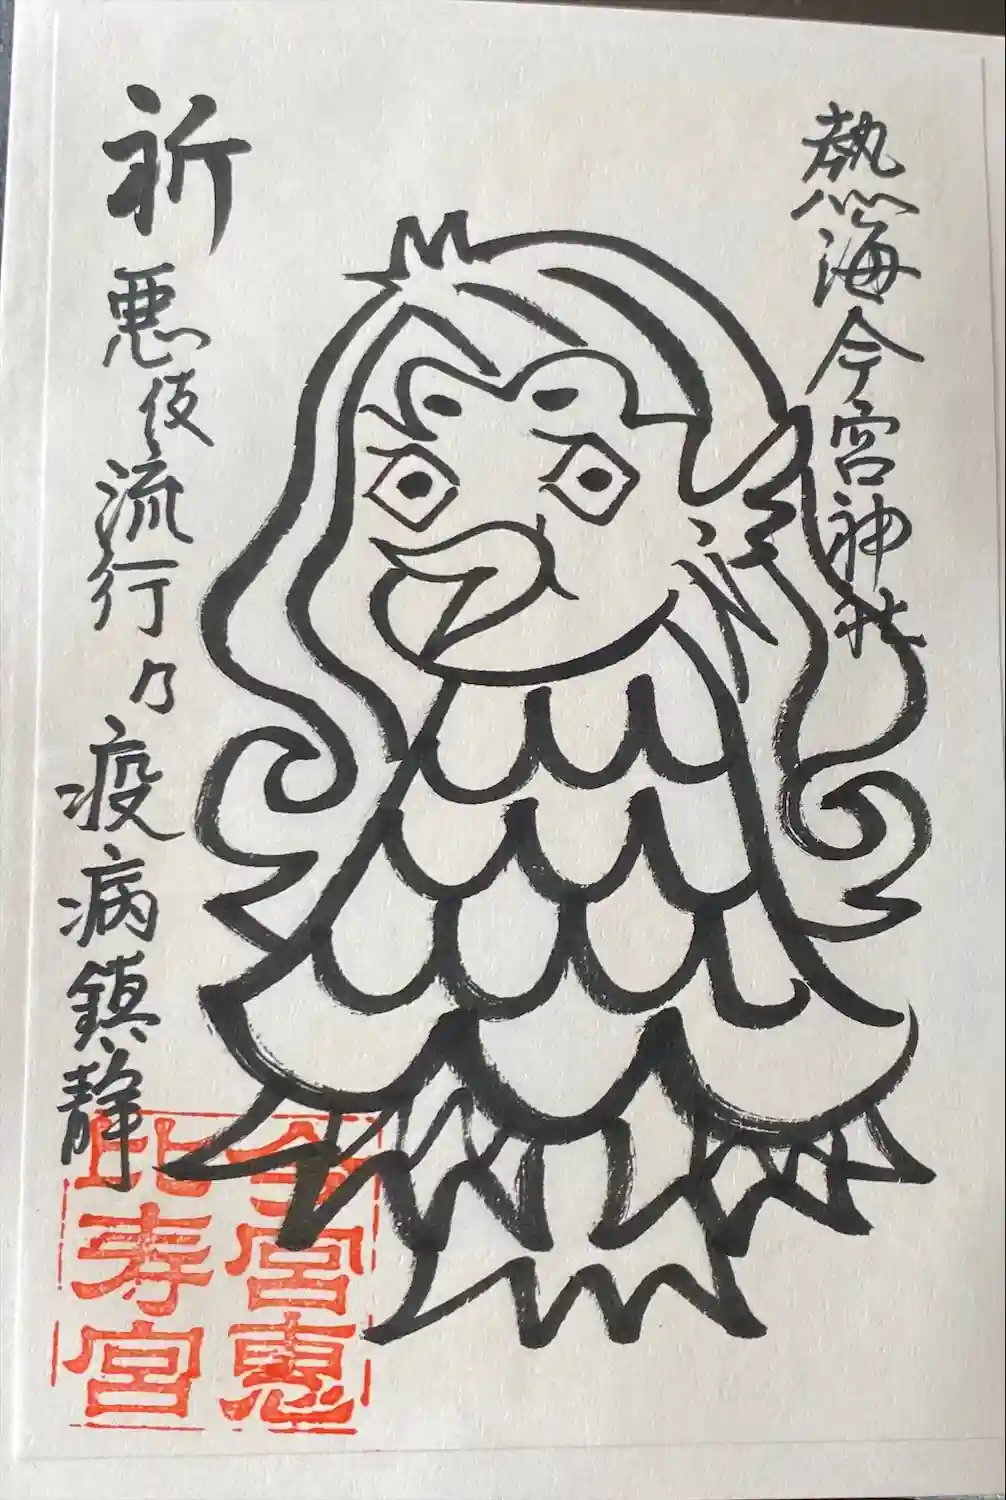 熱海今宮神社
祈
悪伎流行乃疫病鎮静
今宮恵
比寿宮